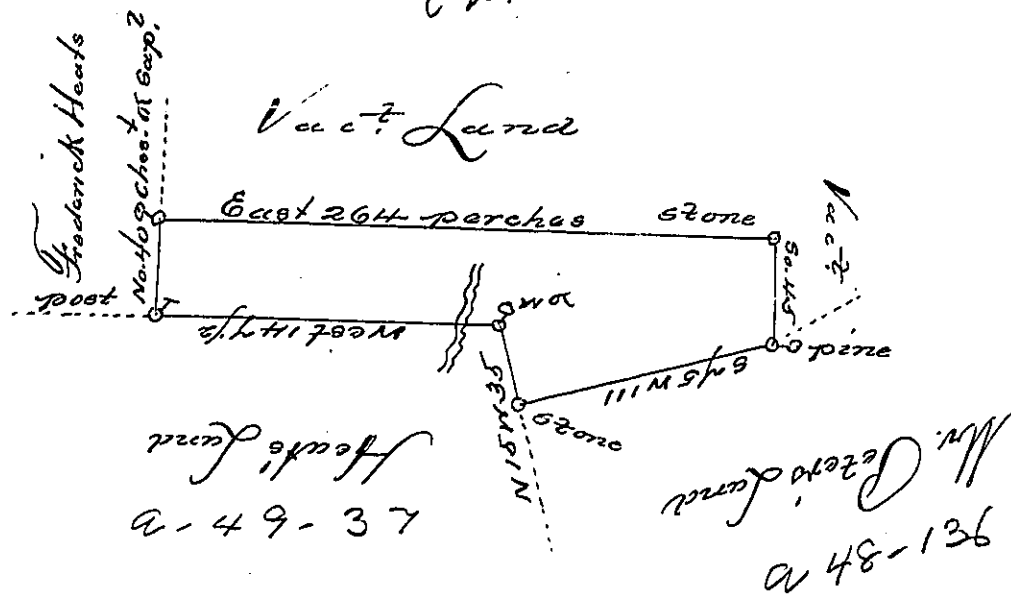 Frederick Heats
No.40
Vac.t Land
East 264 perches
stone
Vac.t
So.45
post
West 147½
W.O
pine
S75W111
stone
N15W35
Heat's Land
a-49-37
Mr. Peter's Land
a 48-136